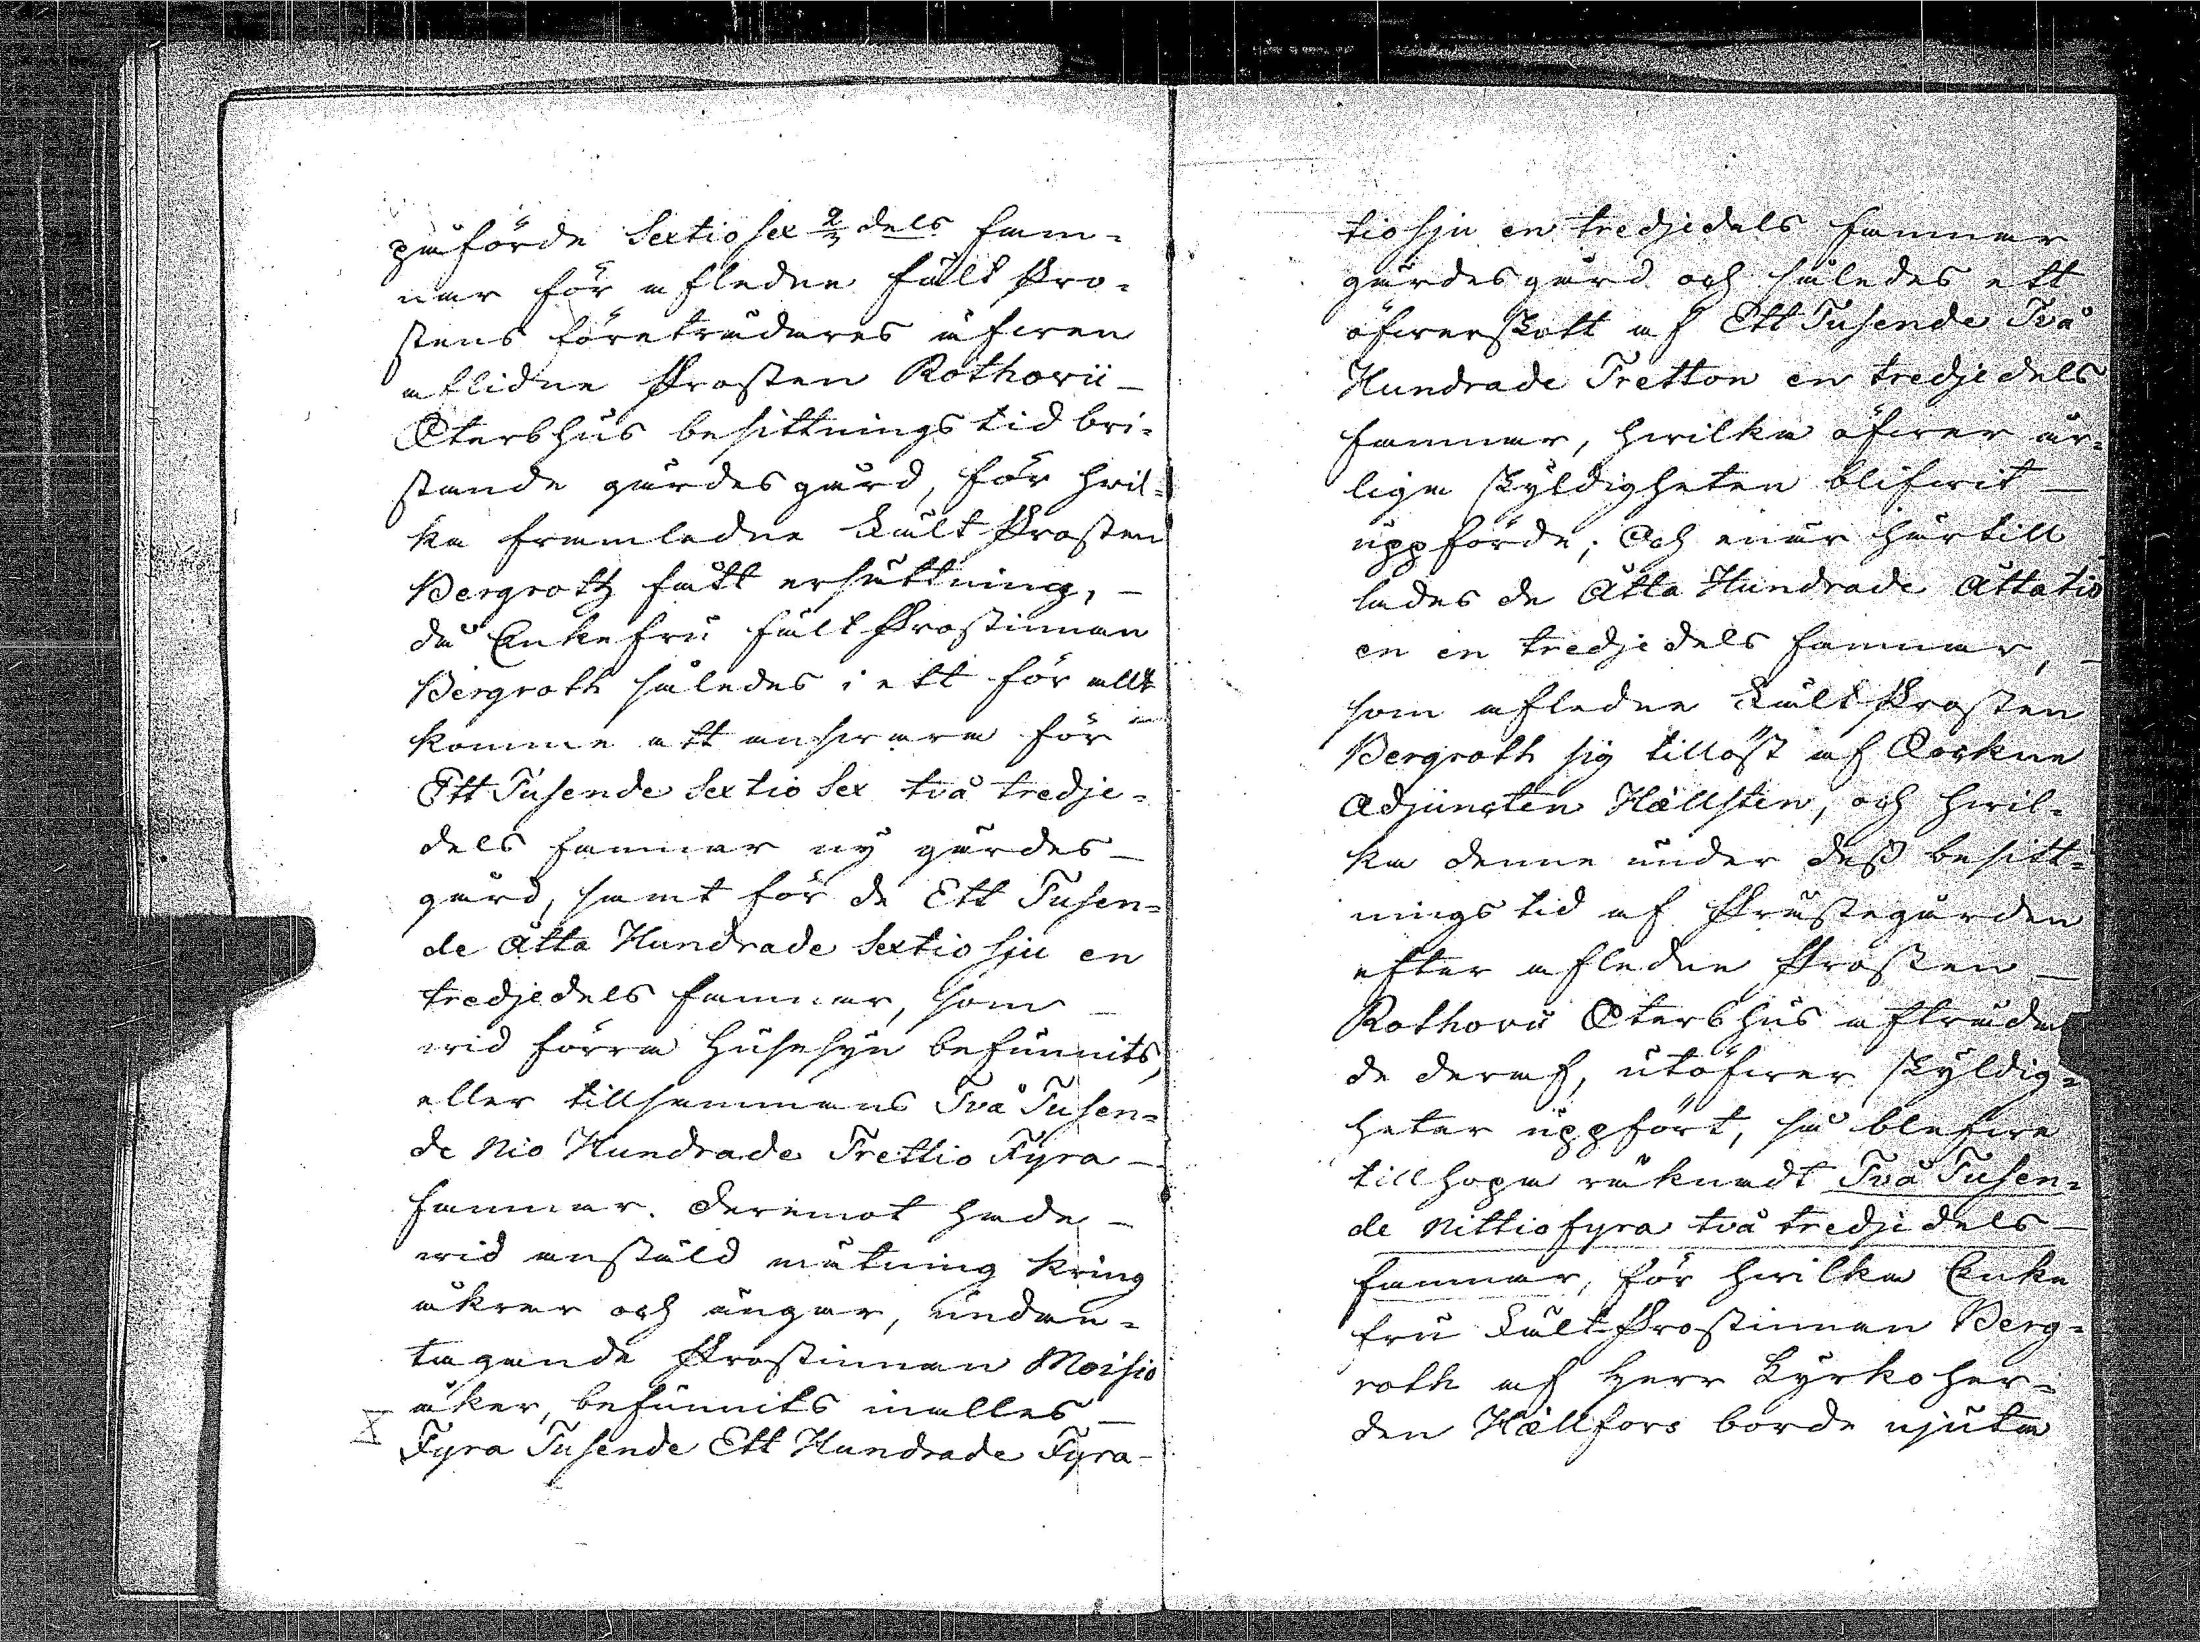 påförde Sextiosex 2/3 dels fam-
nar för afledne Fält Pro-
stens företrädares äfwen
aflidne Prosten Rothovii
Sterbhus besittnings tid bri-
stande gärdesgård, för hvil-
ka framledne Fält Prosten
Bergroth fått ersättning, -
då Enkefru Fält Prostinnan
Bergroth således i ett för allt
komme att answara för
Ett Tusende Sextio Sex två tredje-
dels famnar ny gärdes-
gård, samt för de Ett Tusen-
de Åtta Hundrade Sextio sju en
tredjedels famnar, som
wid förra Husesyn befunnits,
eller tillsammans Två Tusen-
de Nio Hundrade Trettio Fyra -
famnar. Deremot hade -
wid anstäld mätning kring
åkrar och ängar, undan-
tagande Prostinnan Moisio
åker, befunnits inalles -
Fyra Tusende Ett Hundrade Fyra-
tiosju en tredjedels famnar
gärdesgård och således ett
öfwerskott af Ett Tusende Två
Hundrade Tretton en tredjedels
famnar, hwilka öfwer år-
liga skyldigheten blifwit -
uppförde; Och enär härtill
lades de Åtta Hundrade Åttatio
en en tredjedels famnar, -
som afledne Fält Prosten
Bergroth sig tillöst af
Adjuncten Hällsten, och hwil-
ka denne under dess besitt-
nings tid af Prästegården
efter afledne Prosten -
Rothovii Sterbhus afträda
de deraf, utöfwer skyldig-
heter uppfört, så blefwe
tillhopa räknadt Två Tusen-
de Nittiofyra två tredjedels -
famnar, för hwilka Enke
fru Fält-Prostinnan Berg-
roth af Herr Kyrkoher-
den Hällfors borde njuta